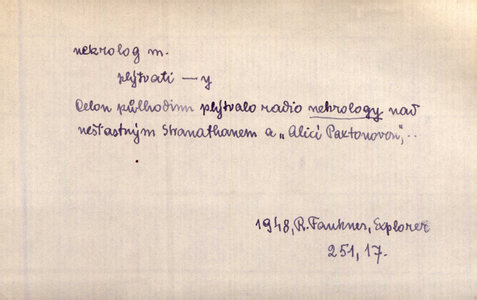 nekrolog m.
plýtvati — y
Celou půlhodinu plýtvalo radio nekrology nad
nešťastným Stranathanem a „Alicí Paxtonovou„...
1948, R. Faukner, Explorer
251, 17.